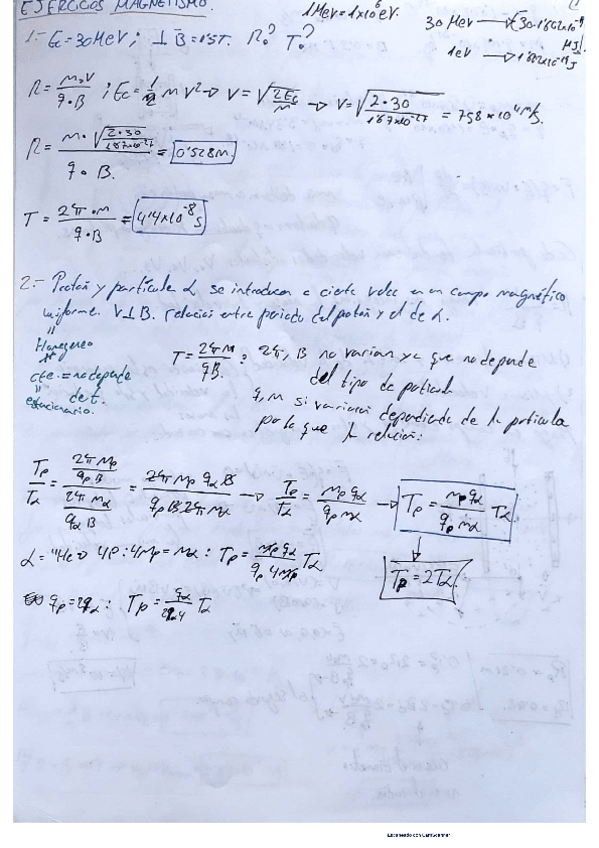 EJERCICIOS MAGNETISMO.
1MeV = 1×10⁶ eV.
30 MeV → E=30·1'602×10⁻¹⁹
1eV → 1'602×10⁻¹⁹ J
1.- Ec = 30MeV; ⊥ B = 1'5T. R? T?
R = m·v / q·B ; Ec = 1/2 m v² → v = √(2Ec/m) → v = √(2·30 / 1'67×10⁻²⁷) = 7'58×10⁷ m/s.
R = m·√(2·30 / 1'67×10⁻²⁷) / q·B. = 0'528m
T = 2π·m / q·B = 4'14×10⁻⁸ s
2.- Protón y partícula α se introducen a cierta veloc en un campo magnético
uniforme. V⊥B. relación entre periodo del protón y el de α.
Homogéneo
cte. = no depende
de t.
estacionario.
T = 2πm / qB : 2π, B no varían ya que no depende
del tipo de partícula
q, m si varían dependiendo de la partícula
por lo que la relación:
Tp/Tα = (2π mp / qp B) / (2π mα / qα B) = 2π mp qα B / qp B 2π mα → Tp/Tα = mp qα / qp mα → Tp = mp qα / qp mα Tα
α = ⁴He → 4p : 4mp = mα : Tp = mp qα / qp 4mp Tα
Tp = 2Tα
qp = 2qα : Tp = qα / 2qα 4 Tα
Escaneado con CamScanner